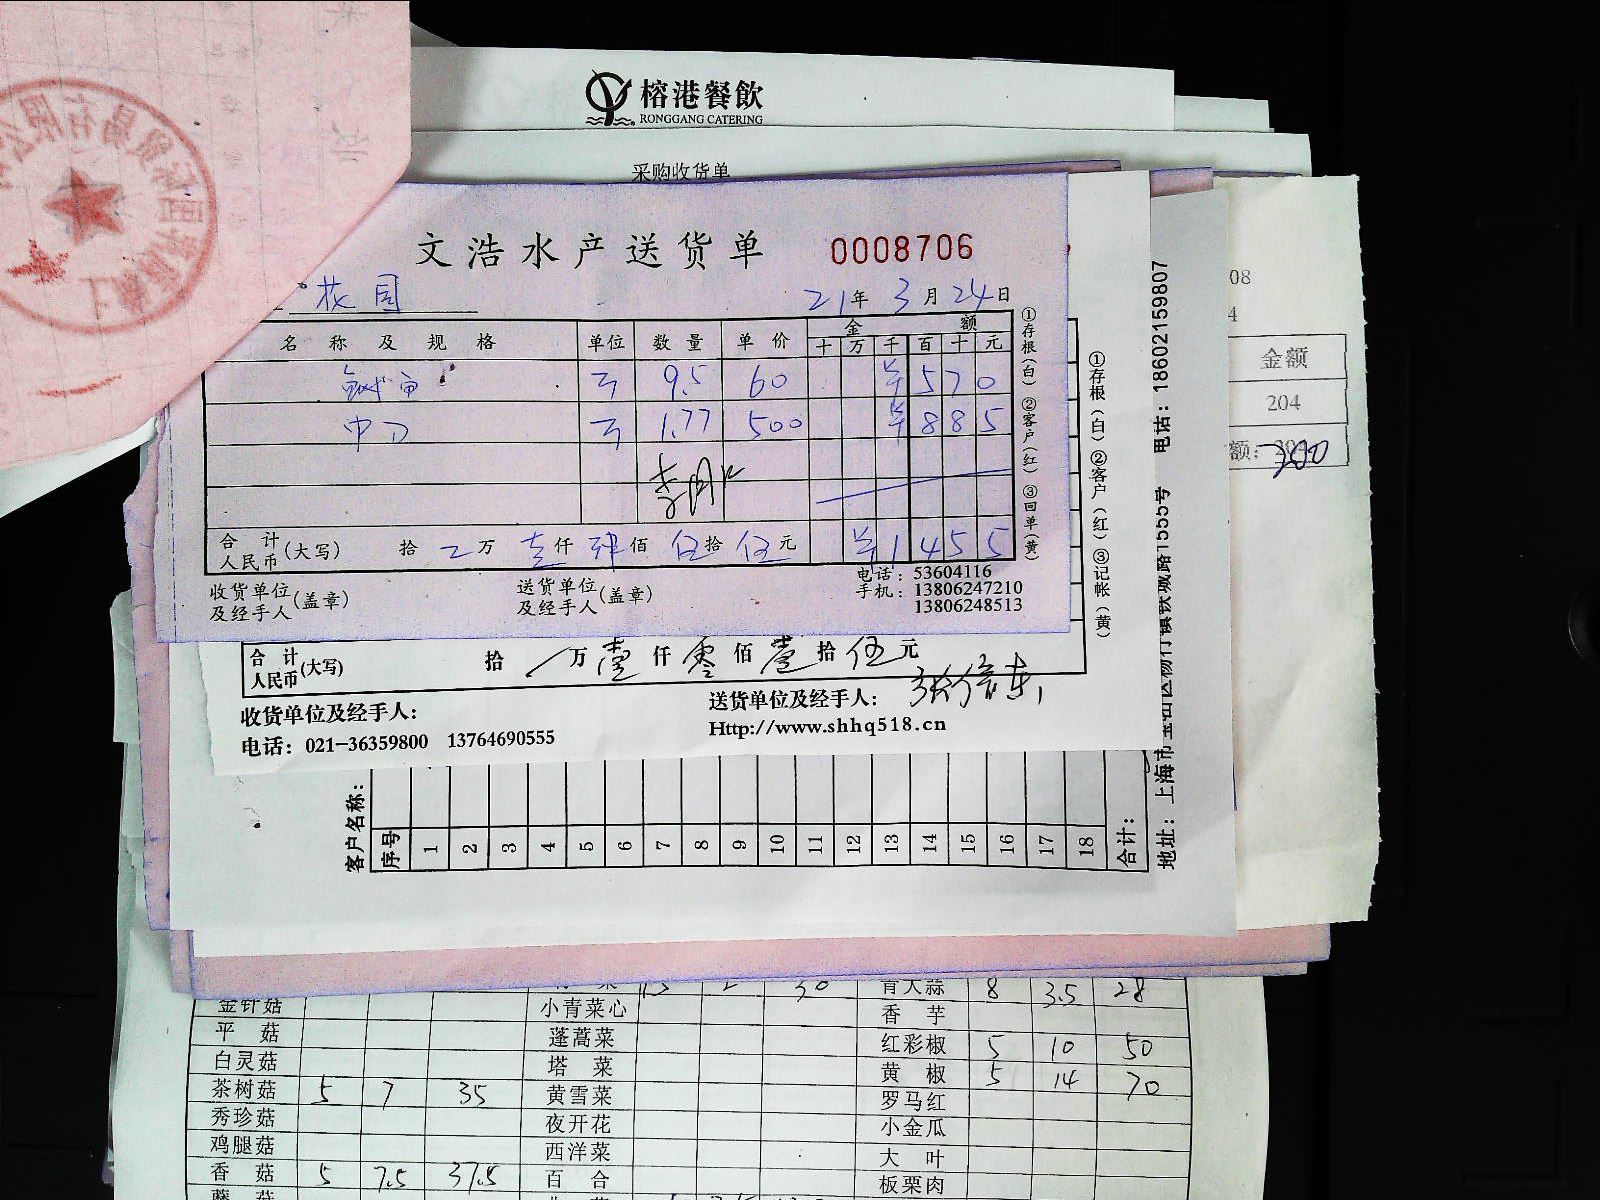 榕港餐飲
RONGGANG CATERING
采购收货单
文浩水产送货单 0008706
花园 21年3月24日
名称及规格 单位 数量 单价 金额
十 万 千 百 十 元
9.5 60 ¥570
中刀 1.77 500 ¥885
合计人民币(大写) 拾 万 壹仟 肆佰 伍拾 伍元 ¥1455
收货单位及经手人(盖章) 送货单位及经手人(盖章) 电话:53604116
手机:13806247210
13806248513
①存根(白)②客户(红)③回单(黄)
①存根(白)②客户(红)③记帐(黄)
合计人民币(大写) 拾 万 壹仟 零佰 壹拾 伍元
收货单位及经手人: 送货单位及经手人:
电话: 021-36359800 13764690555 Http://www.shhq518.cn
电话: 18602159807
08
4
金额
204
额: 200
客户名称:
序号 1 2 3 4 5 6 7 8 9 10 11 12 13 14 15 16 17 18 合计:
金针菇 30 青大蒜 8 3.5 28
平菇 小青菜心 香芋
白灵菇 蓬蒿菜 红彩椒 5 10 50
茶树菇 5 7 35 塔菜 黄椒 5 14 70
秀珍菇 黄雪菜 罗马红
鸡腿菇 夜开花 小金瓜
香菇 5 7.5 37.5 西洋菜 大叶
百合 板栗肉